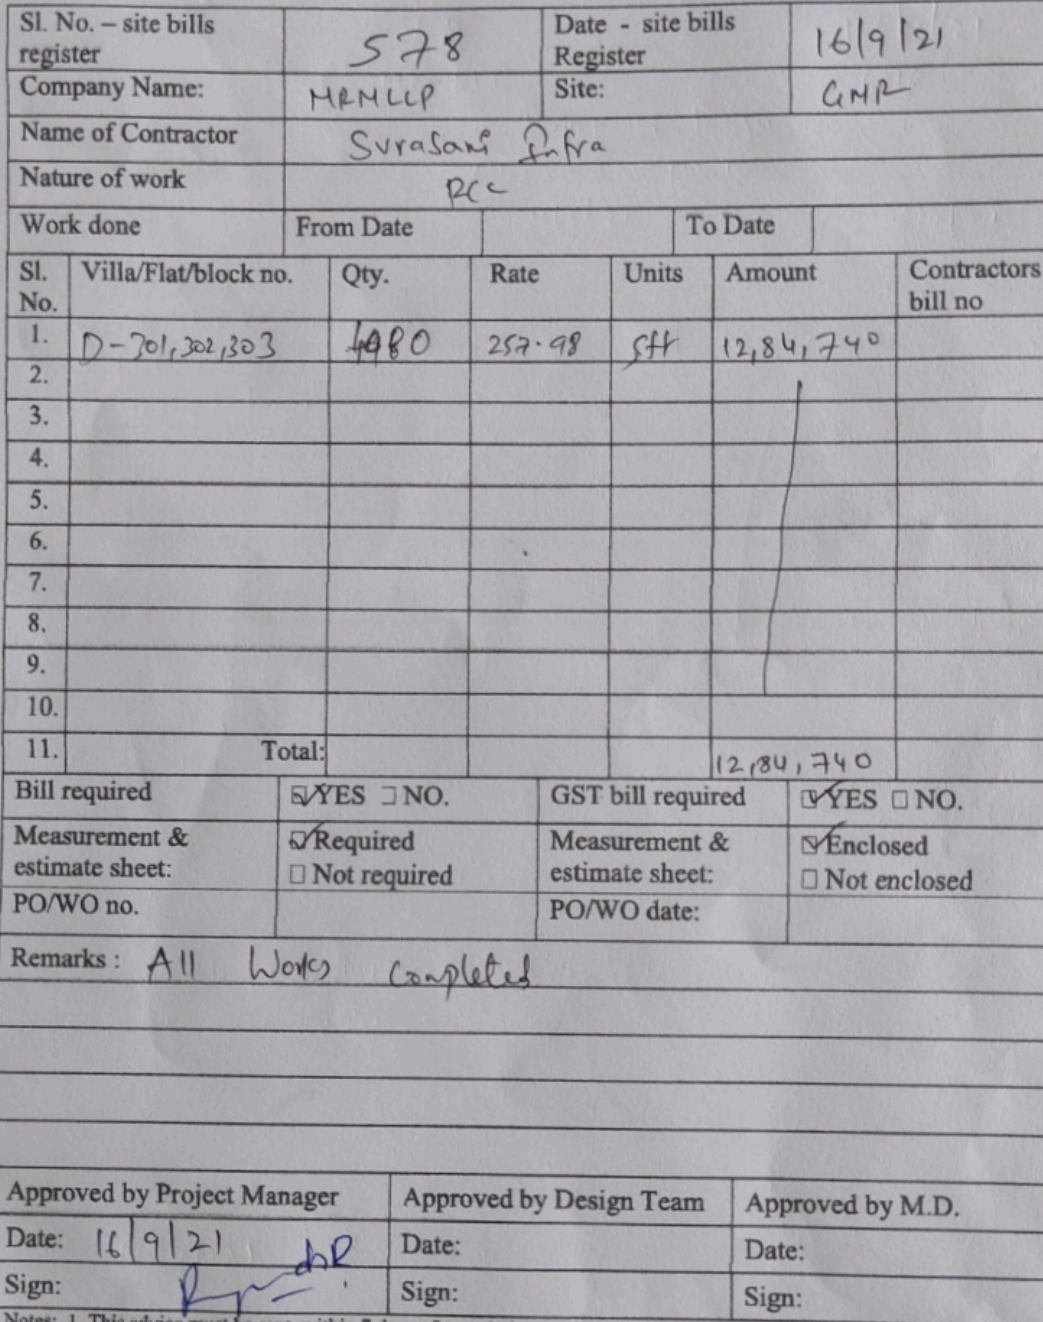 Sl. No. – site bills register 578 Date - site bills Register 16/9/21
Company Name: MRMLLP Site: GMR
Name of Contractor Surasani Infra
Nature of work RCC
Work done From Date To Date
Sl. No. Villa/Flat/block no. Qty. Rate Units Amount Contractors bill no
1. D-301,302,303 4980 257.98 sft 12,84,740
2.
3.
4.
5.
6.
7.
8.
9.
10.
11. Total: 12,84,740
Bill required ☑YES ☐NO. GST bill required ☑YES ☐NO.
Measurement & estimate sheet: ☑Required ☐Not required Measurement & estimate sheet: ☑Enclosed ☐Not enclosed
PO/WO no. PO/WO date:
Remarks : All Works Completed
Approved by Project Manager Approved by Design Team Approved by M.D.
Date: 16/9/21 Date: Date:
Sign: Sign: Sign:
Notes: 1. This advice must be